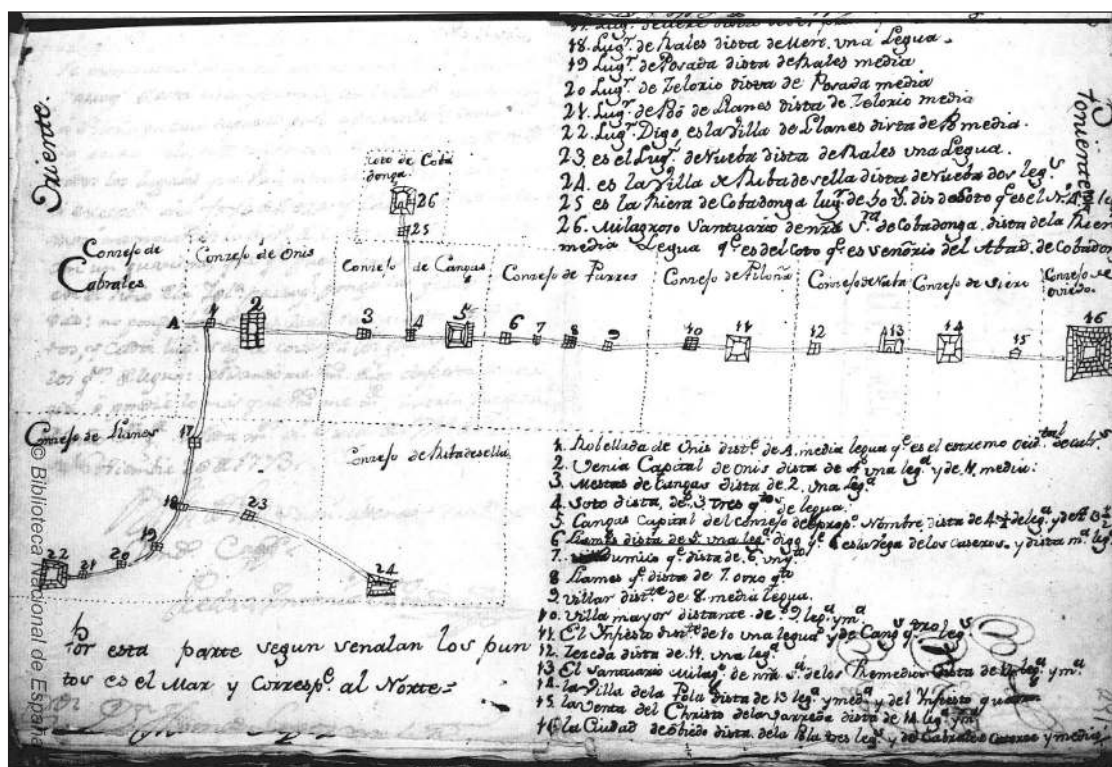 18. Lugʳ. de Rales dista de Mere. vna Legua.
19 Lugʳ. de Posada dista de Rales media
20 Lugʳ. de Zelorio dista de Posada media
21. Lugʳ. de Pó de Llanes dista de Zelorio media
22. Lugʳ. Digo es la Villa de Llanes dista de P. media.
23. es el Lugʳ. de Nueba dista de Rales vna Legua.
24. es la Villa de Ribadesella dista de Nueba dos legˢ
25 es la Riera de Cobadonga lugʳ. de 30 V. dis de Soto qᵉ es el Nº. 4
26. Milagroso Santuario de nrà Sʳᵃ de Cobadonga, dista de la Rier
media Legua qᵉ es del Coto qᵉ es venorio del Abad. de Cobadon
Oriente.
Poniente
Coto de Coba
donga.
26
25
Conzejo de
Cabrales
Conzejo de Onis
Conzejo de Cangas
Conzejo de Parres
Conzejo de Piloña
Conzejo de Naba
Conzejo de Siero
Conzejo de
oviedo.
A 1 2 3 4 5 6 7 8 9 10 11 12 13 14 15 16
Conzejo de Llanes
17
Conzejo de Ribadesella
18 23
19
20
21
22
24
1. Robellada de Onis distᵉ de A. media legua qᵉ es el estremo
2. Venia Capital de Onis dista de Aᵃ vna legᵃ y de 1. media:
3. Mestas de Cangas dista de 2. vna Legᵃ
4. Soto dista, de 3 tres qᵗᵒˢ de legua.
5. Cangas Capital del conzejo de propº. Nombre dista de 4 ½ de legᵃ. y de A 3 ½
6 Llames dista de 5. vna legᵃ digo qᵉ 6 es la Vega de los Caseros. y dista mᵃ legᵃ
7. qᵉ dista de 6. vn qᵗᵒ
8 Llames qᵉ dista de 7. otro qᵗᵒ
9. Villar distᵗᵉ de 8. media legua.
10. Villa mayor distante de 9 legᵃ. y mᵃ
11. El Ynfiesto distᵗᵉ de 10 vna legua y de Cangˢ qᵗʳᵒ legˢ
12. Zezeda dista de 11. vna legᵃ
13 El Santuario Milagº. de nrã Sᵃ. de los Remedios dista de 12 legᵃ y mᵃ.
14. la Villa de la Pola dista de 13 legᵃ. y medᵃ. y del Ynfiesto quatro
15 la Venta del Christo de la Varreda dista de 14 legᵃ ymᵃ
16 la Ciudad de Obiedo dista de la Pola tres legˢ y de Cabrales Catorce y media
Por esta parte segun señalan los pun
tos es el Mar y Correspᵉ. al Norte=
© Biblioteca Nacional de España